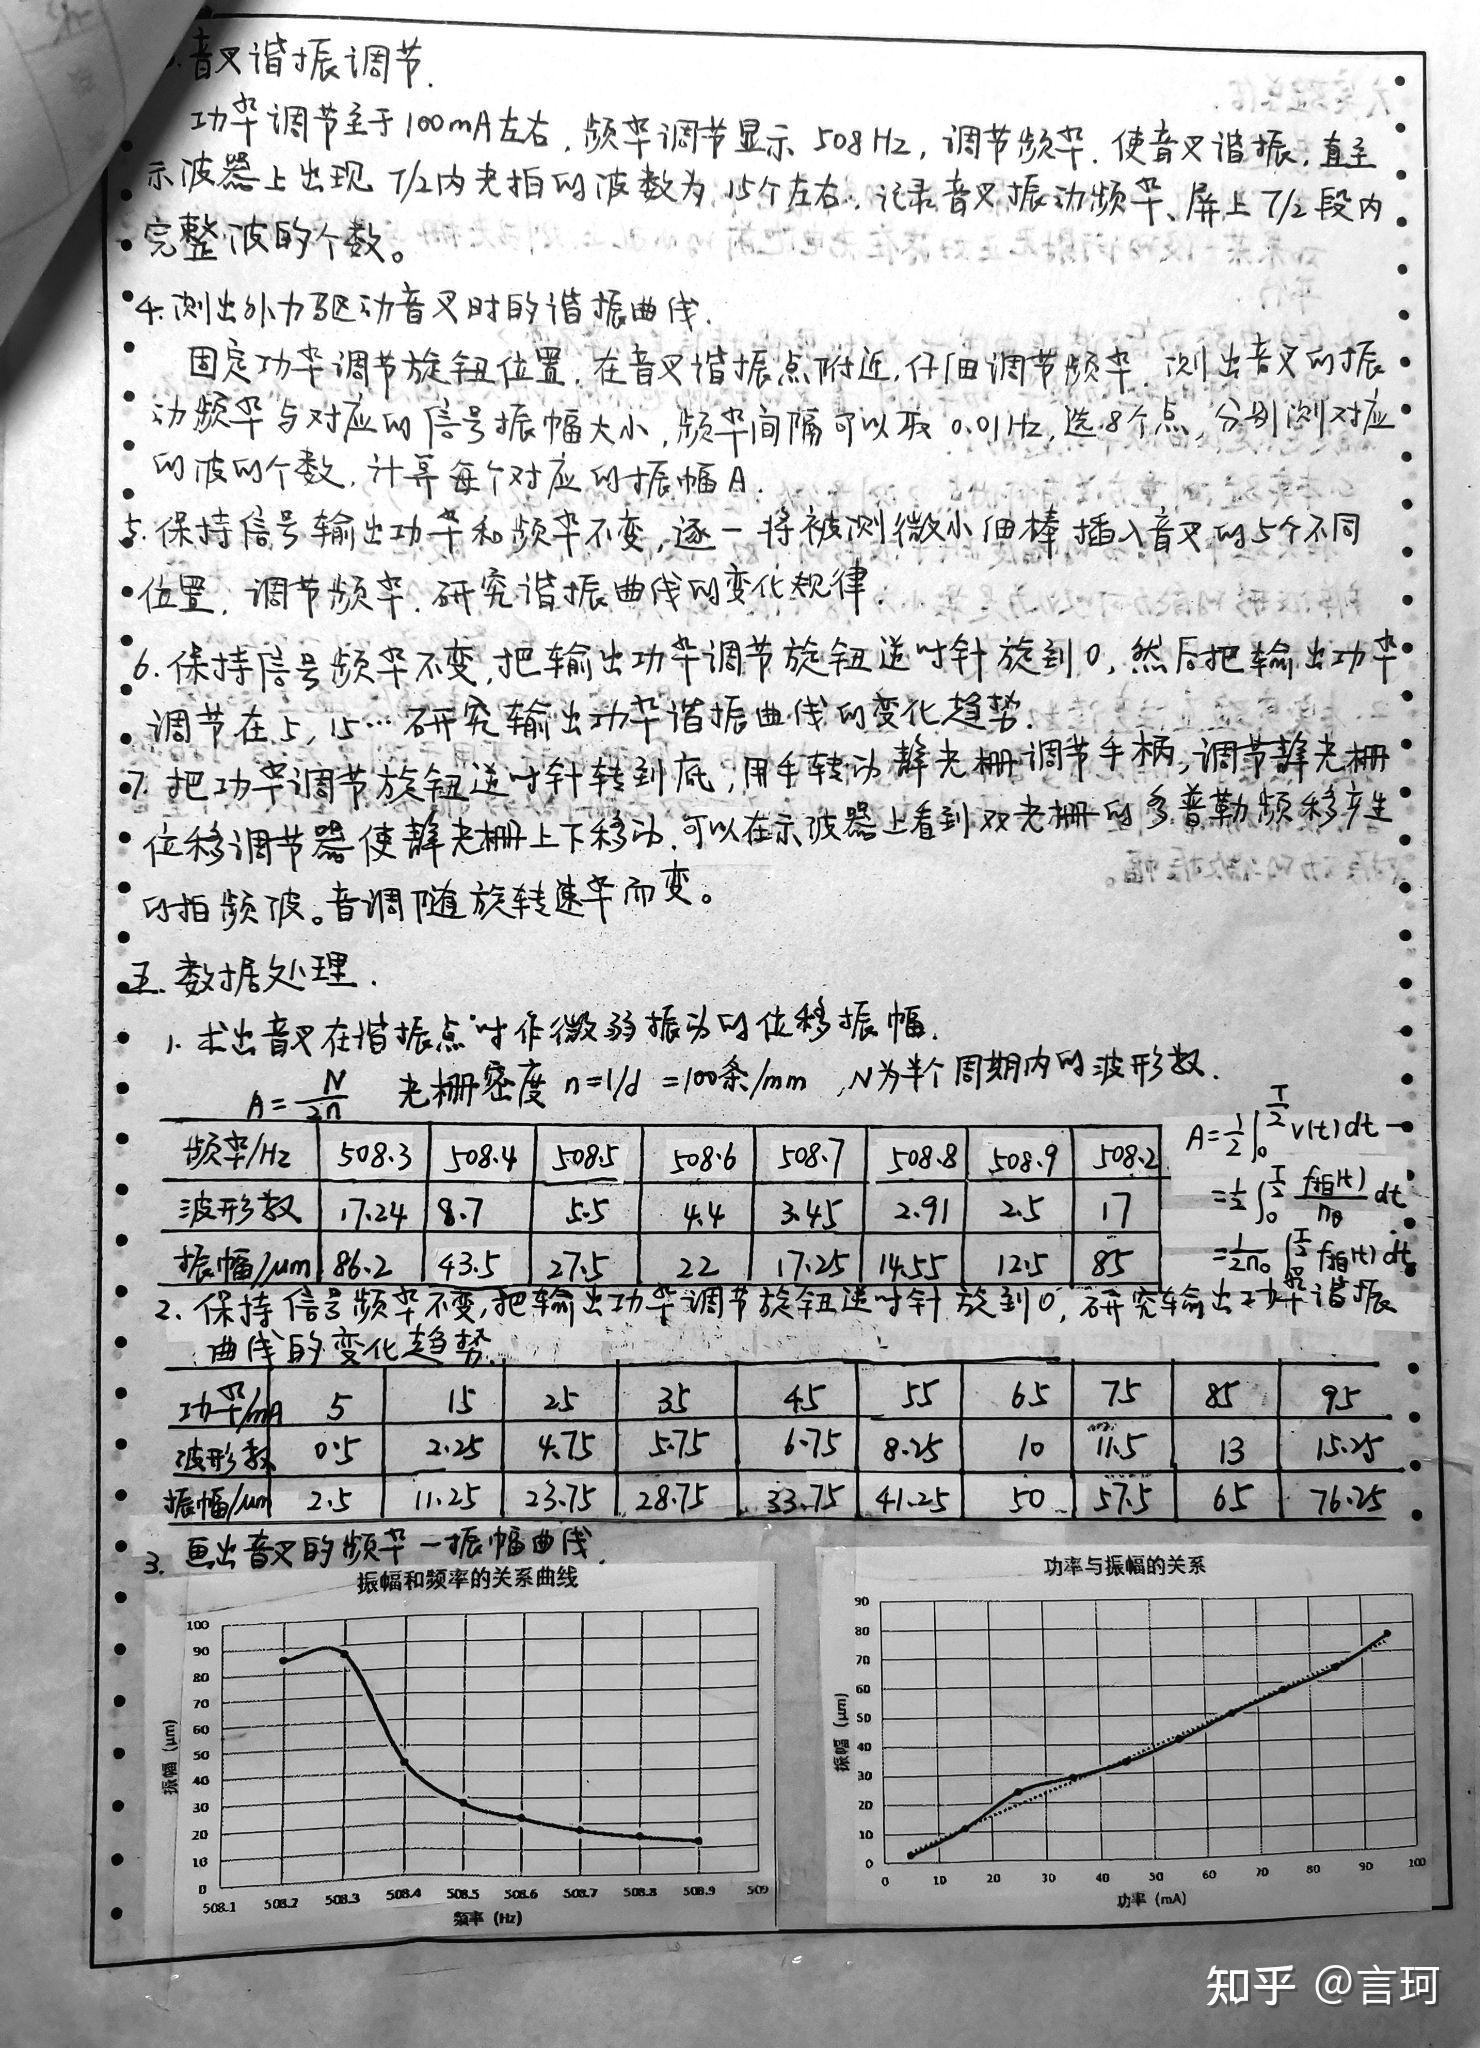 音叉谐振调节.
功率调节至于100mA左右，频率调节显示 508Hz，调节频率.使音叉谐振，直至
示波器上出现 T/2内光拍的波数为 15个左右，记录音叉振动频率、屏上T/2段内
完整波的个数。
4.测出外力驱动音叉时的谐振曲线.
固定功率调节旋钮位置.在音叉谐振点附近,仔细调节频率.测出音叉的振
动频率与对应的信号振幅大小,频率间隔可以取 0.01Hz,选8个点,分别测对应
的波的个数,计算每个对应的振幅A.
5.保持信号输出功率和频率不变,逐一将被测微小细棒插入音叉的5个不同
位置,调节频率.研究谐振曲线的变化规律.
6.保持信号频率不变,把输出功率调节旋钮逆时针旋到0,然后把输出功率
调节在5,15…研究输出功率谐振曲线的变化趋势.
7.把功率调节旋钮逆时针转到底,用手转动静光栅调节手柄,调节静光栅
位移调节器使静光栅上下移动.可以在示波器上看到双光栅的多普勒频移产生
的拍频波。音调随旋转速率而变。
五.数据处理.
1.求出音叉在谐振点时作微弱振动的位移振幅.
A=N/2n 光栅密度 n=1/d=100条/mm ,N为半个周期内的波形数.
频率/Hz 508.3 508.4 508.5 508.6 508.7 508.8 508.9 508.2
波形数 17.24 8.7 5.5 4.4 3.45 2.91 2.5 17
振幅/μm 86.2 43.5 27.5 22 17.25 14.55 12.5 85
A=1/2∫₀^{T/2} v(t)dt
=1/2∫₀^{T/2} f拍(t)/nθ dt
=1/2n₀∫₀^{T/2} f拍(t)dt
2.保持信号频率不变,把输出功率调节旋钮逆时针旋到0,研究输出功率谐振
曲线的变化趋势.
功率/mA 5 15 25 35 45 55 65 75 85 95
波形数 0.5 2.25 4.75 5.75 6.75 8.25 10 11.5 13 15.25
振幅/μm 2.5 11.25 23.75 28.75 33.75 41.25 50 57.5 65 76.25
3.画出音叉的频率—振幅曲线.
振幅和频率的关系曲线
100
90
80
70
60
50
40
30
20
10
0
振幅（μm）
508.1 508.2 508.3 508.4 508.5 508.6 508.7 508.8 508.9 509
频率（Hz）
功率与振幅的关系
90
80
70
60
50
40
30
20
10
0
振幅（μm）
0 10 20 30 40 50 60 70 80 90 100
功率（mA）
知乎 @言珂